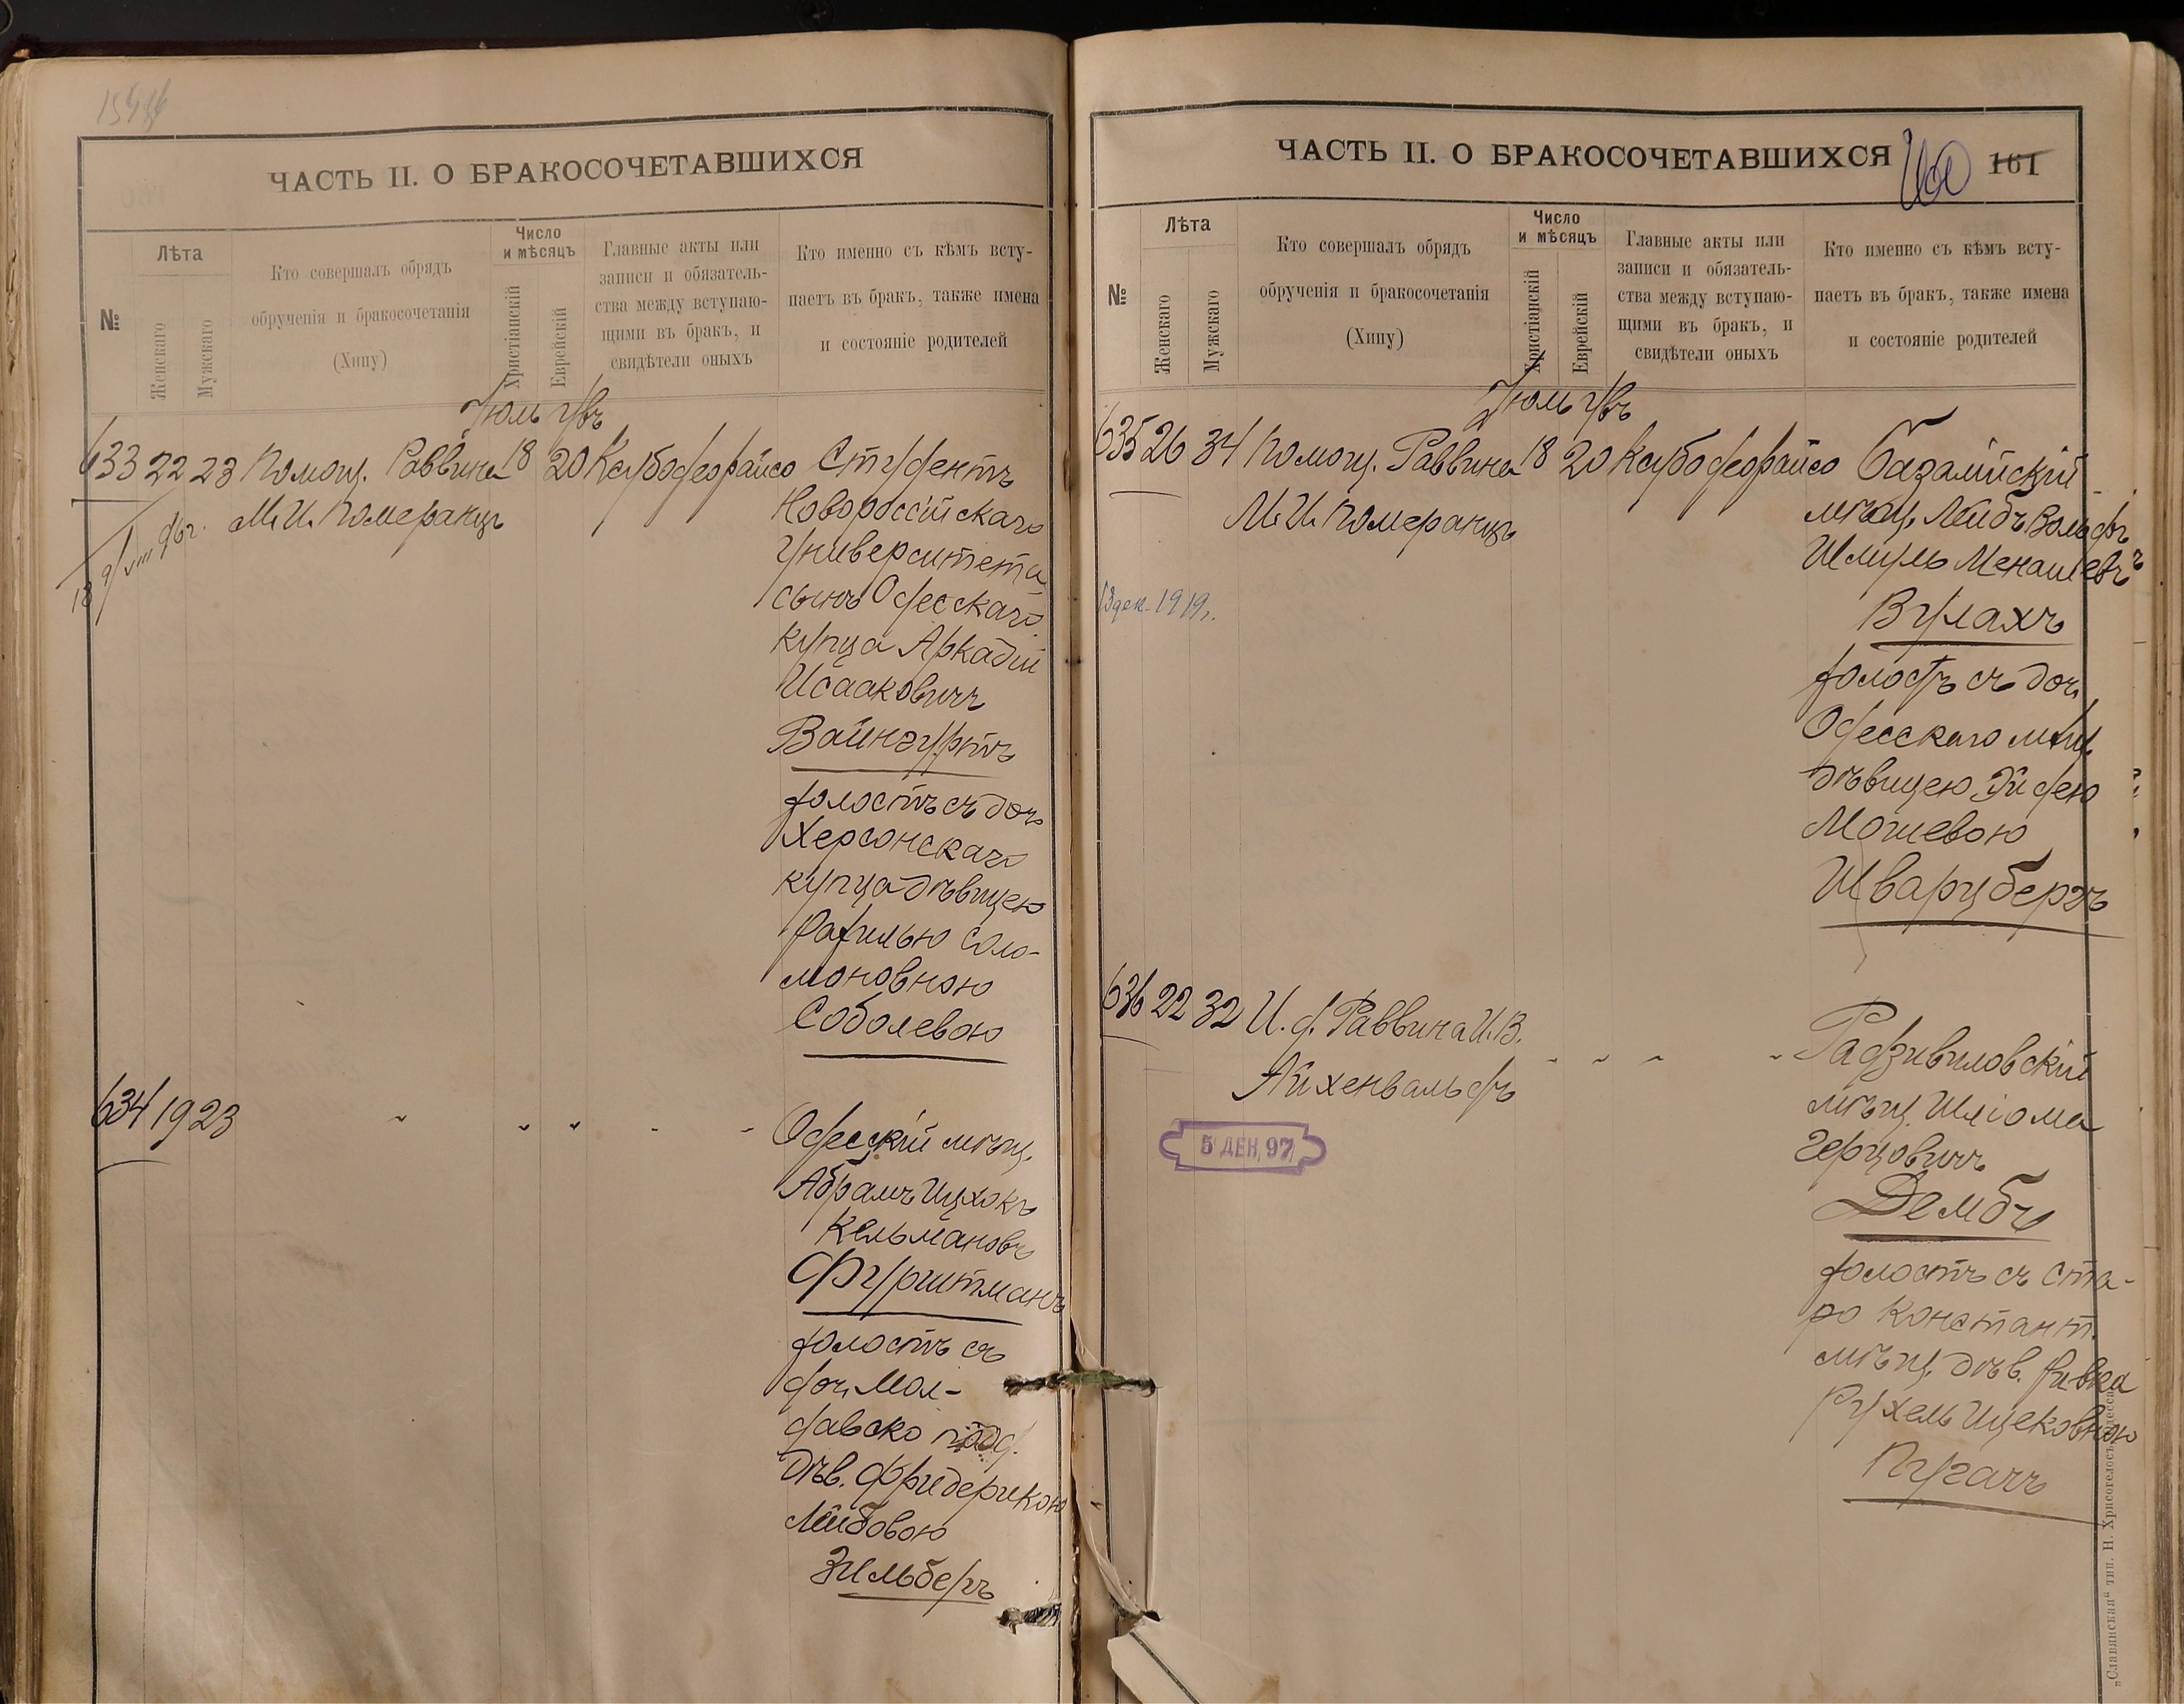 ЧАСТЬ II. О БРАКОСОЧЕТАВШИХСЯ
№
Лѣта
Женскаго
Мужскаго
Кто совершалъ обрядъ
обрученія и бракосочетанія
(Хипу)
Число
и мѣсяцъ
Христіанскій
Еврейскій
Главные акты или
записи и обязатель-
ства между вступаю-
щими въ бракъ, и
свидѣтели оныхъ
Кто именно съ кѣмъ всту-
паетъ въ бракъ, также имена
и состояніе родителей
Іюль
633 22 23 Помощ. Раввина 18 20
М. И. Померанцъ
Студентъ
Новороссійскаго
Университета
сынъ Одесскаго
купца Аркадій
Исааковичъ
Вайнгуртъ
холостъ съ доч
Херсонскаго
купца дѣвицею
Рахилью Соло-
моновною
Соболевою
634 19 23
Одесскій мѣщ.
Абрамъ Ицхокъ
Кельмановъ
Фурштманъ
холостъ съ
доч. Мол-
давско подд.
дѣв. Фридерикою
Лейбовою
Зильберъ
ЧАСТЬ II. О БРАКОСОЧЕТАВШИХСЯ
160 161
№
Лѣта
Женскаго
Мужскаго
Кто совершалъ обрядъ
обрученія и бракосочетанія
(Хипу)
Число
и мѣсяцъ
Христіанскій
Еврейскій
Главные акты или
записи и обязатель-
ства между вступаю-
щими въ бракъ, и
свидѣтели оныхъ
Кто именно съ кѣмъ всту-
паетъ въ бракъ, также имена
и состояніе родителей
Іюль
635 26 34 Помощ. Раввина 18 20
М. И. Померанцъ
13 дек. 1919 г.
Базалійскій
мѣщ. Лейбъ Вольфъ
Шмуль Менашевъ
Вулахъ
холостъ съ доч.
Одесскаго мѣщ.
дѣвицею Эйдею
Мошевою
Шварцбергъ
636 22 32 И. д. Раввина И. В.
Айхенвальдъ
5 ДЕК. 97
Радзивиловскій
мѣщ. Шліома
Герцовичъ
Дембъ
холостъ съ Ста-
ро Констант.
мѣщ. дѣв. Ривка
Рухель Ицековною
Пугачъ
„Славянская“ тип. Н. Хрисогелосъ, Одесса